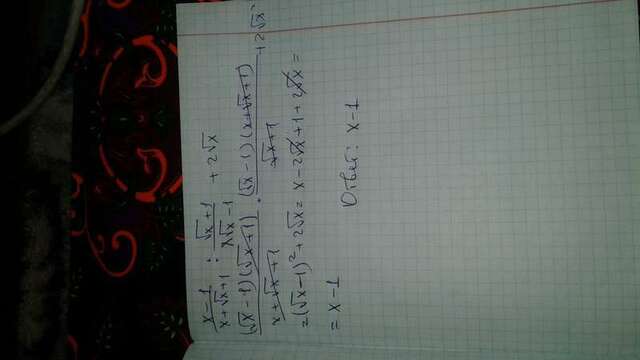 (x-1)/(x+√x+1) : (√x+1)/(x√x-1) + 2√x
((√x-1)(√x+1))/(x+√x+1) · ((√x-1)(x+√x+1))/(√x+1) + 2√x =
= (√x-1)² + 2√x = x - 2√x + 1 + 2√x =
= x-1
Ответ: x-1